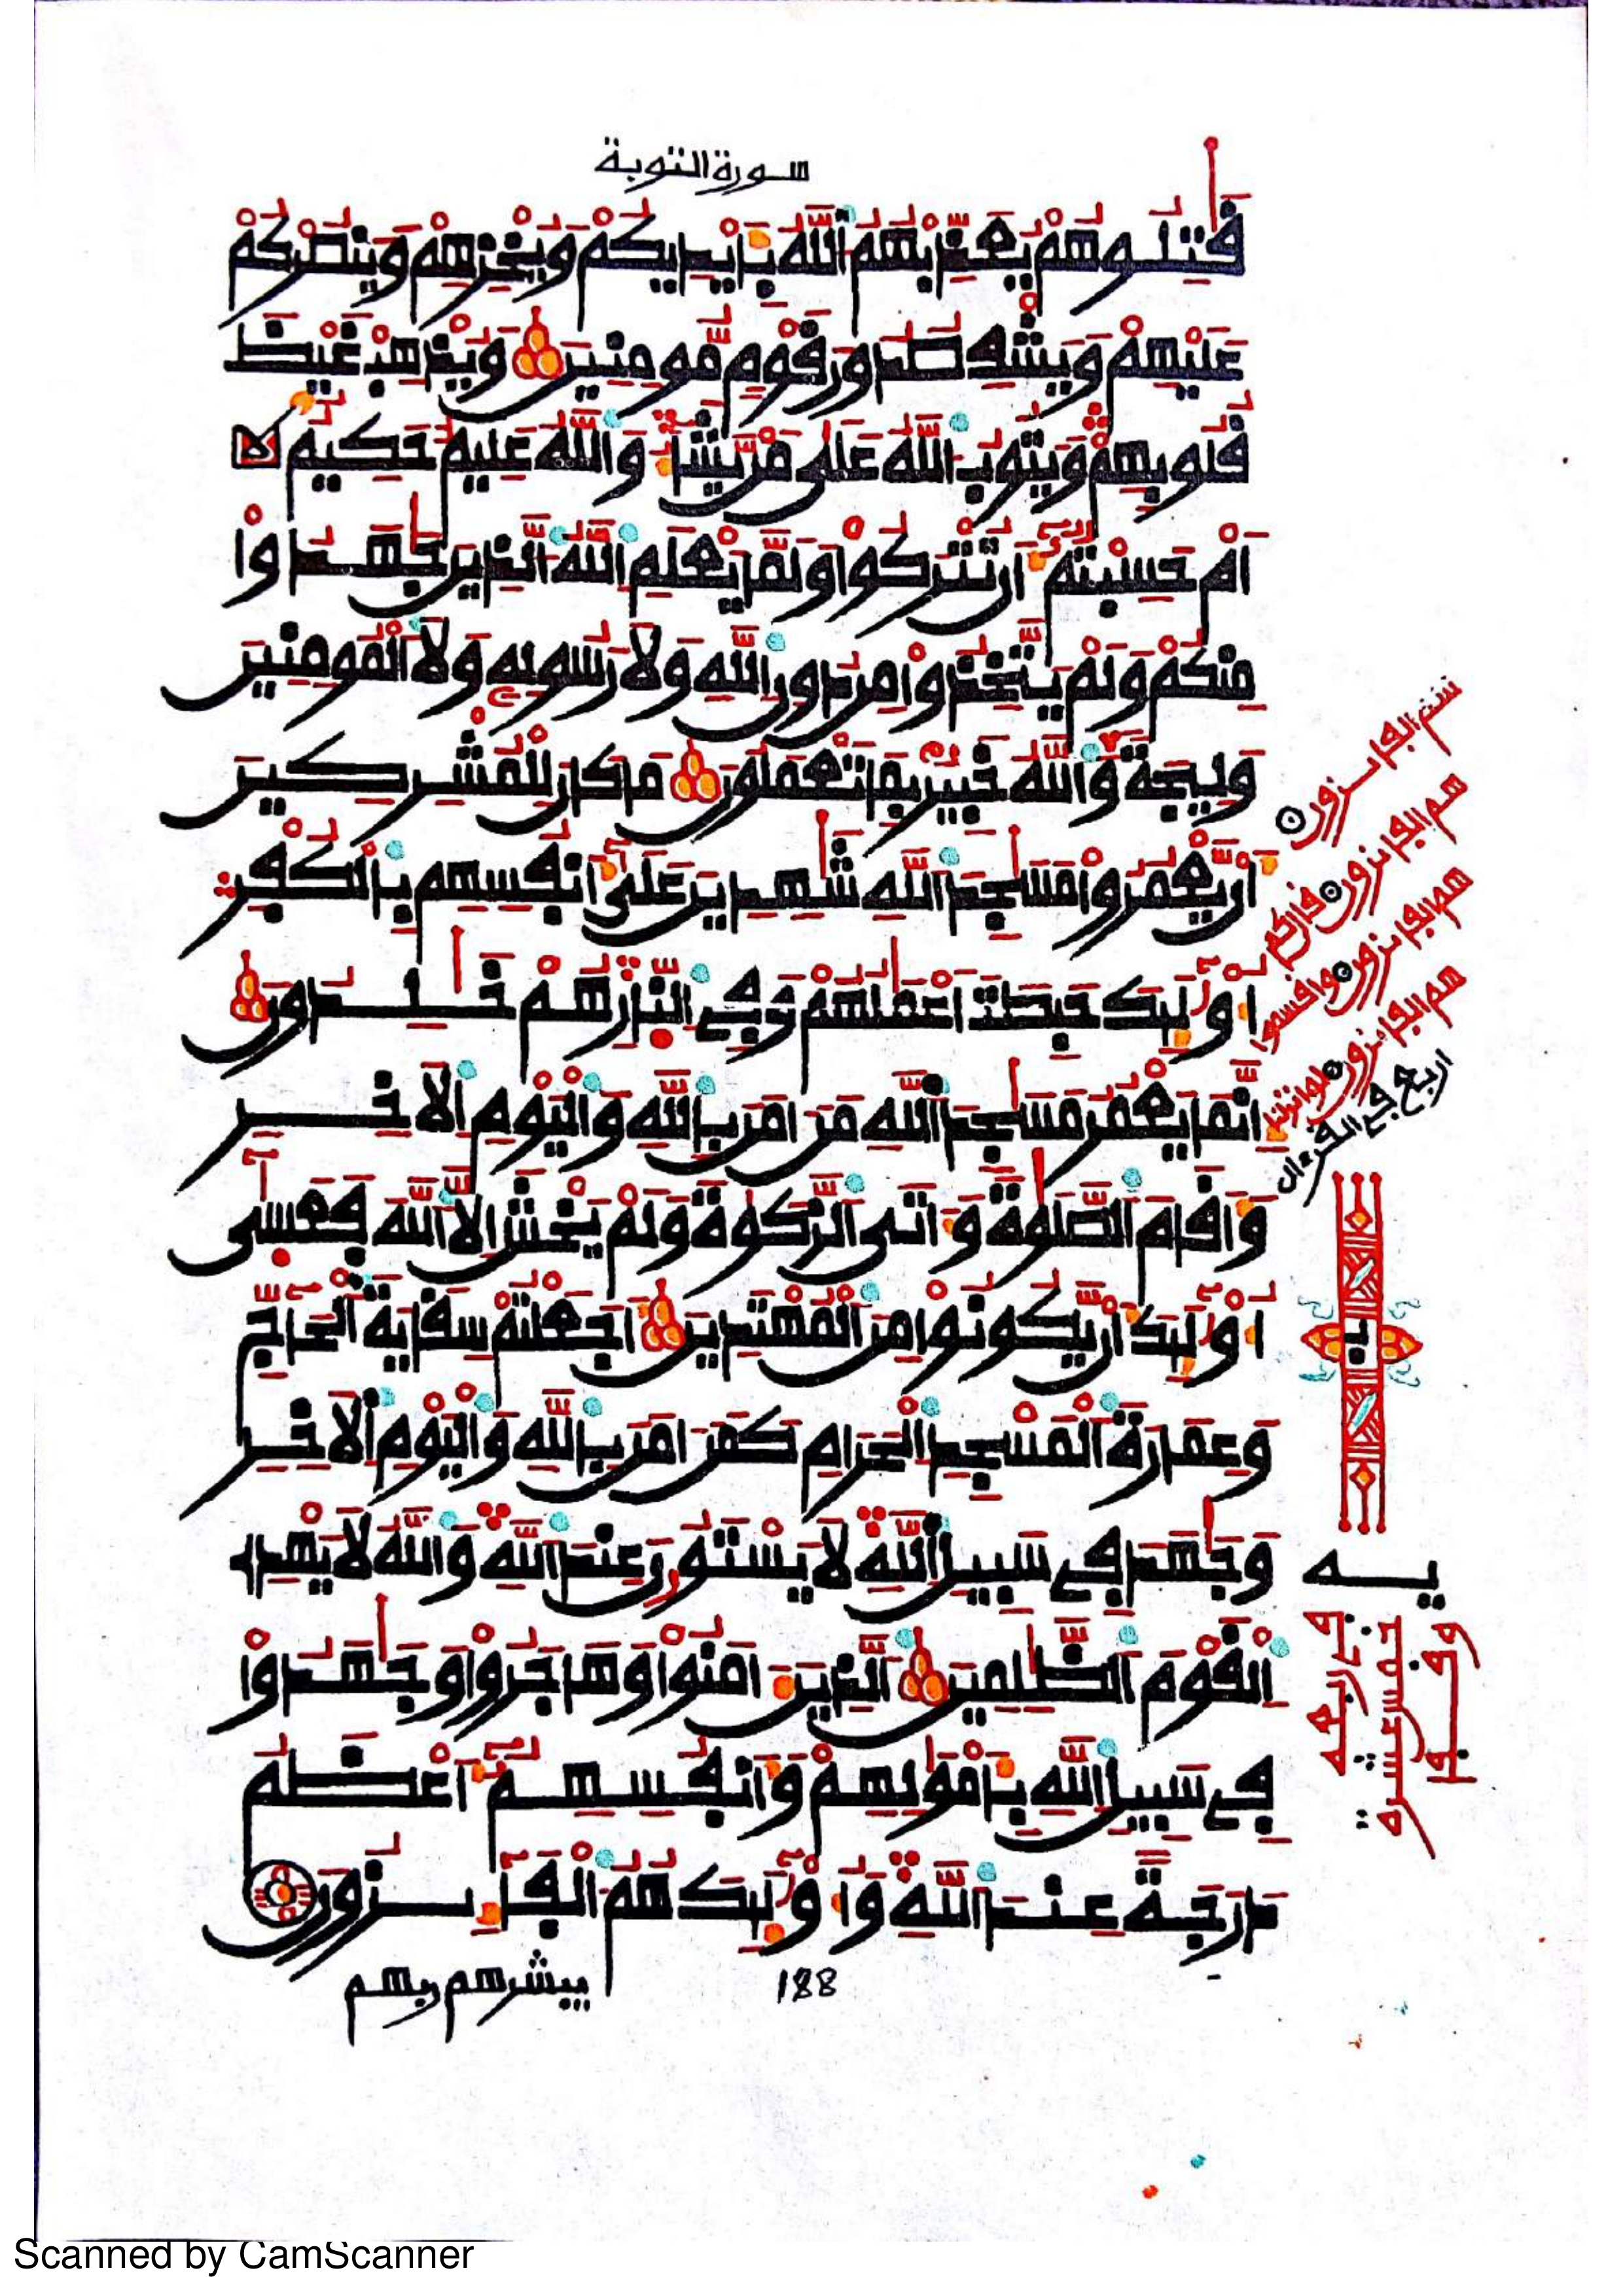 سورة التوبة
قَٰتِلُوهُمْ يُعَذِّبْهُمُ اللَّهُ بِأَيْدِيكُمْ وَيُخْزِهِمْ وَيَنصُرْكُمْ
عَلَيْهِمْ وَيَشْفِ صُدُورَ قَوْمٍ مُّومِنِينَ وَيُذْهِبْ غَيْظَ
قُلُوبِهِمْ وَيَتُوبُ اللَّهُ عَلَىٰ مَنْ يَّشَاءُ وَاللَّهُ عَلِيمٌ حَكِيمٌ
أَمْ حَسِبْتُمُ أَن تُتْرَكُواْ وَلَمَّا يَعْلَمِ اللَّهُ الَّذِينَ جَٰهَدُواْ
مِنكُمْ وَلَمْ يَتَّخِذُواْ مِن دُونِ اللَّهِ وَلَا رَسُولِهِ وَلَا الْمُومِنِينَ
وَلِيجَةً وَاللَّهُ خَبِيرٌ بِمَا تَعْمَلُونَ مَا كَانَ لِلْمُشْرِكِينَ
أَنْ يَّعْمُرُواْ مَسَٰجِدَ اللَّهِ شَٰهِدِينَ عَلَىٰ أَنفُسِهِم بِالْكُفْرِ
أُوْلَٰئِكَ حَبِطَتَ اَعْمَٰلُهُمْ وَفِي النّارِ هُمْ خَٰلِدُونَ
إِنَّمَا يَعْمُرُ مَسَٰجِدَ اللَّهِ مَنَ اٰمَنَ بِاللَّهِ وَالْيَوْمِ الْأَخِرِ
وَأَقَامَ الصَّلَوٰةَ وَءَاتَى الزَّكَوٰةَ وَلَمْ يَخْشَ إِلَّا اللَّهَ فَعَسَىٰ
أُوْلَٰئِكَ أَنْ يَّكُونُواْ مِنَ الْمُهْتَدِينَ أَجَعَلْتُمْ سِقَايَةَ الْحَاجِّ
وَعِمَارَةَ الْمَسْجِدِ الْحَرَامِ كَمَنَ اٰمَنَ بِاللَّهِ وَالْيَوْمِ الْأَخِرِ
وَجَٰهَدَ فِي سَبِيلِ اللَّهِ لَا يَسْتَوُونَ عِندَ اللَّهِ وَاللَّهُ لَا يَهْدِي
الْقَوْمَ الظَّٰلِمِينَ الَّذِينَ ءَامَنُواْ وَهَاجَرُواْ وَجَٰهَدُواْ
فِي سَبِيلِ اللَّهِ بِأَمْوَٰلِهِمْ وَأَنفُسِهِمُ أَعْظَمُ
دَرَجَةً عِندَ اللَّهِ وَأُوْلَٰئِكَ هُمُ الْفَائِزُونَ
يبشرهم ربهم
188
هم الفائزون
هم الفائزون
هم الفائزون وافسموا
هم الفائزون لو انزلنا
اربع في القرءان
Scanned by CamScanner